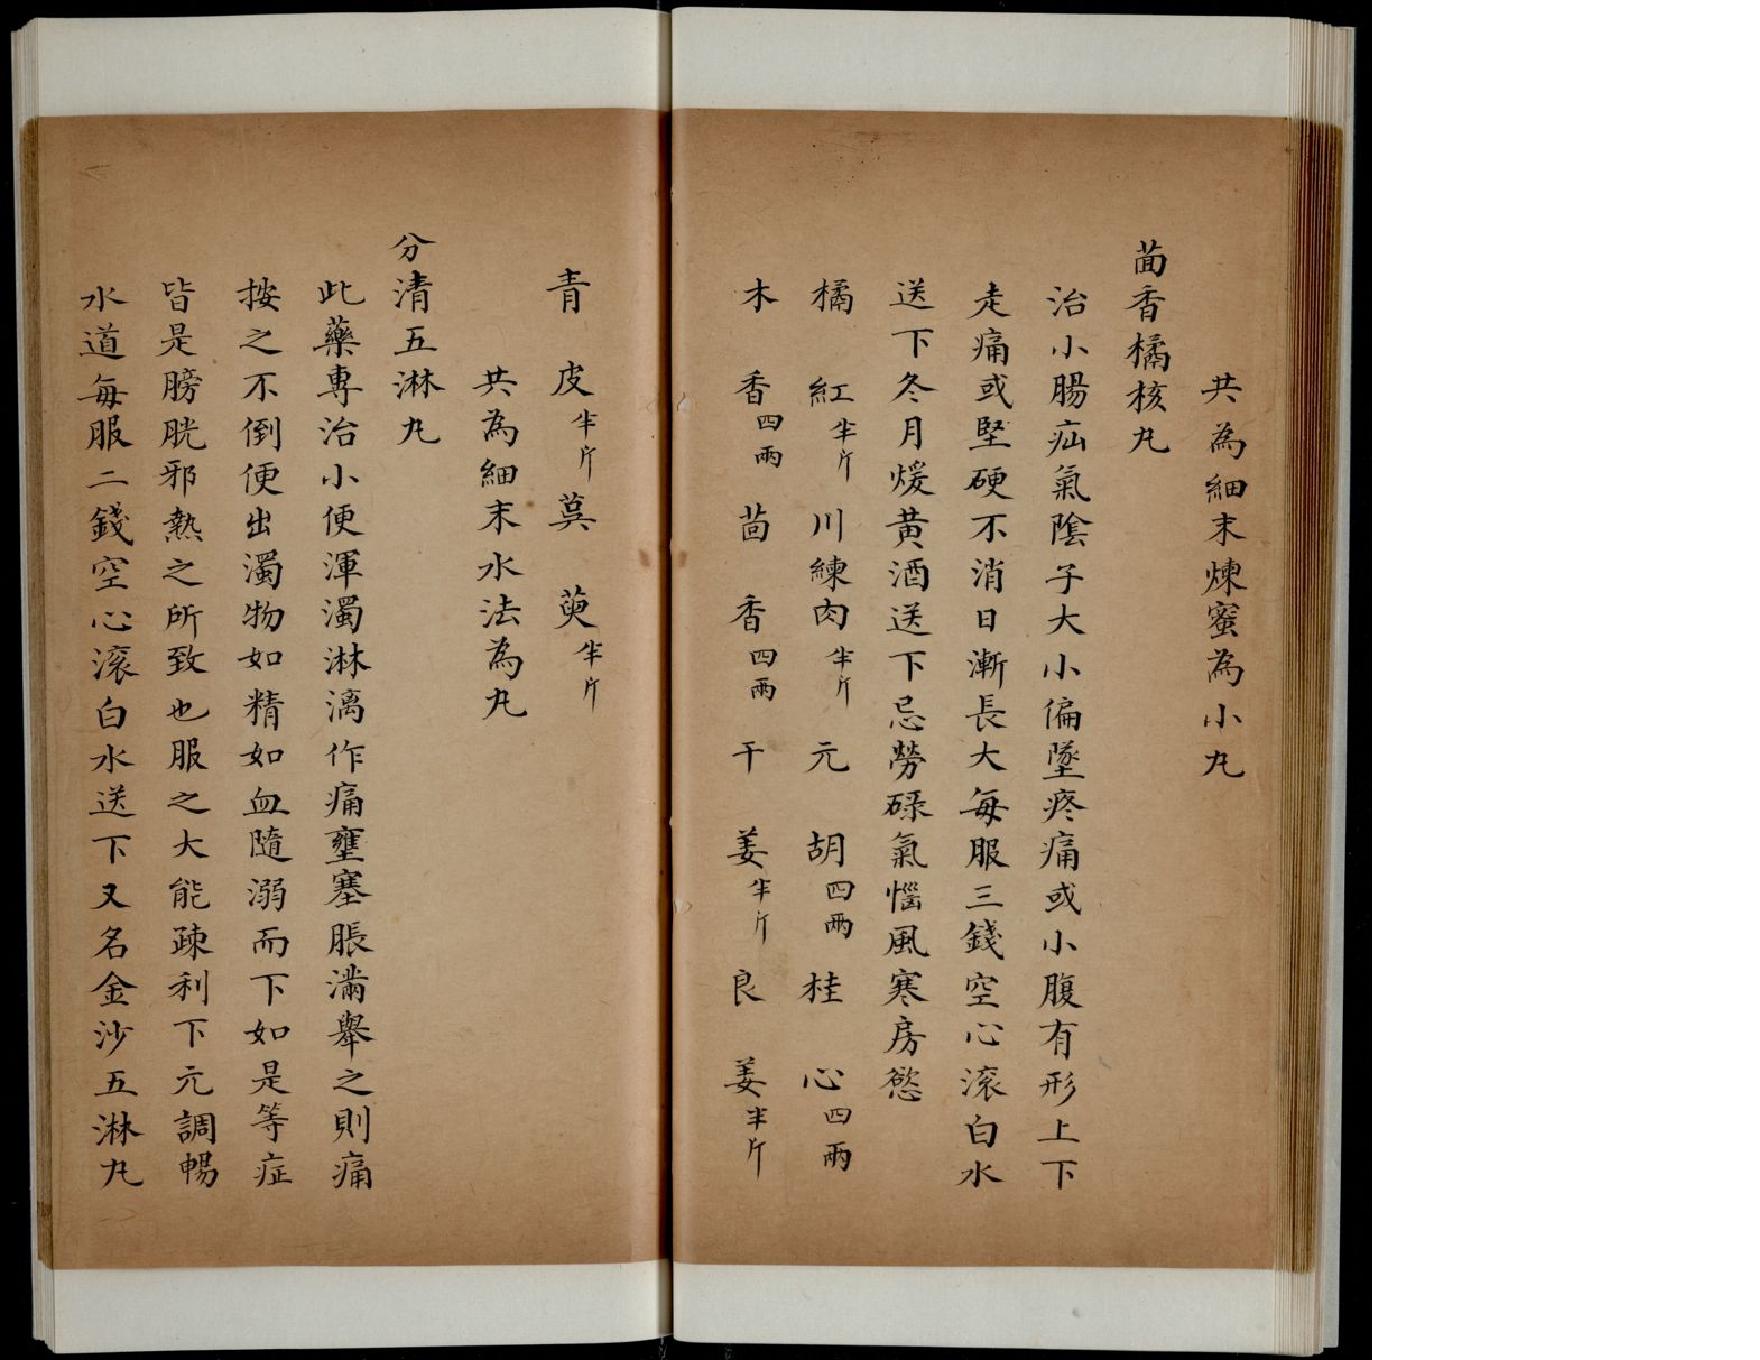 共為細末煉蜜為小丸
茴香橘核丸
治小腸疝氣陰子大小偏墜疼痛或小腹有形上下
走痛或堅硬不消日漸長大每服三錢空心滚白水
送下冬月煖黃酒送下忌勞碌氣惱風寒房慾
橘紅半斤川練肉半斤元胡四兩桂心四兩
木香四兩茴香四兩干姜半斤良姜半斤
青皮半斤萸萸半斤
共為細末水法為丸
分清五淋丸
此藥專治小便渾濁淋漓作痛壅塞脹滿舉之則痛
按之不倒便出濁物如精如血隨溺而下如是等症
皆是膀胱邪熱之所致也服之大能疎利下元調暢
水道每服二錢空心滚白水送下又名金沙五淋丸